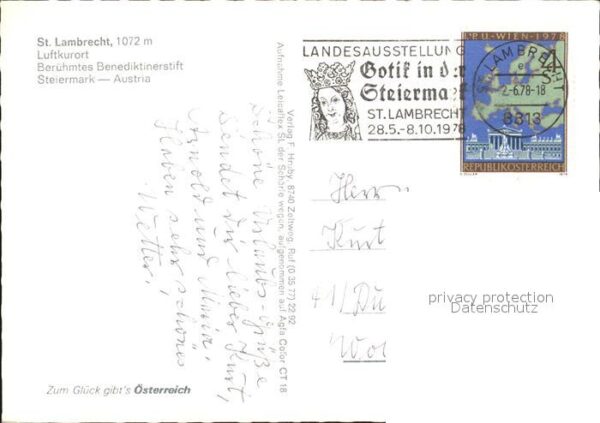 St. Lambrecht, 1072 m
Luftkurort
Berühmtes Benediktinerstift
Steiermark — Austria
Schöne Urlaubs-Grüße
sendet dir lieber Kurt,
Arnold und
Haben sehr schönes
Wetter!
Zum Glück gibt's Österreich
Verlag F. Hruby, 8740 Zeltweg, Ruf (0 35 77) 22 92
Aufnahme Leicaflex SL der Schärfe wegen, aufgenommen auf Agfa Color CT 18
LANDESAUSSTELLUNG
Gotik in der
Steierma
ST. LAMBRECHT
28.5.-8.10.1978
I.P.U.-WIEN-1978
S4
ST. LAMBRECHT
2.-6.78-18
8813
REPUBLIK ÖSTERREICH
Herrn
Kurt
41/Du
Wol
privacy protection
Datenschutz